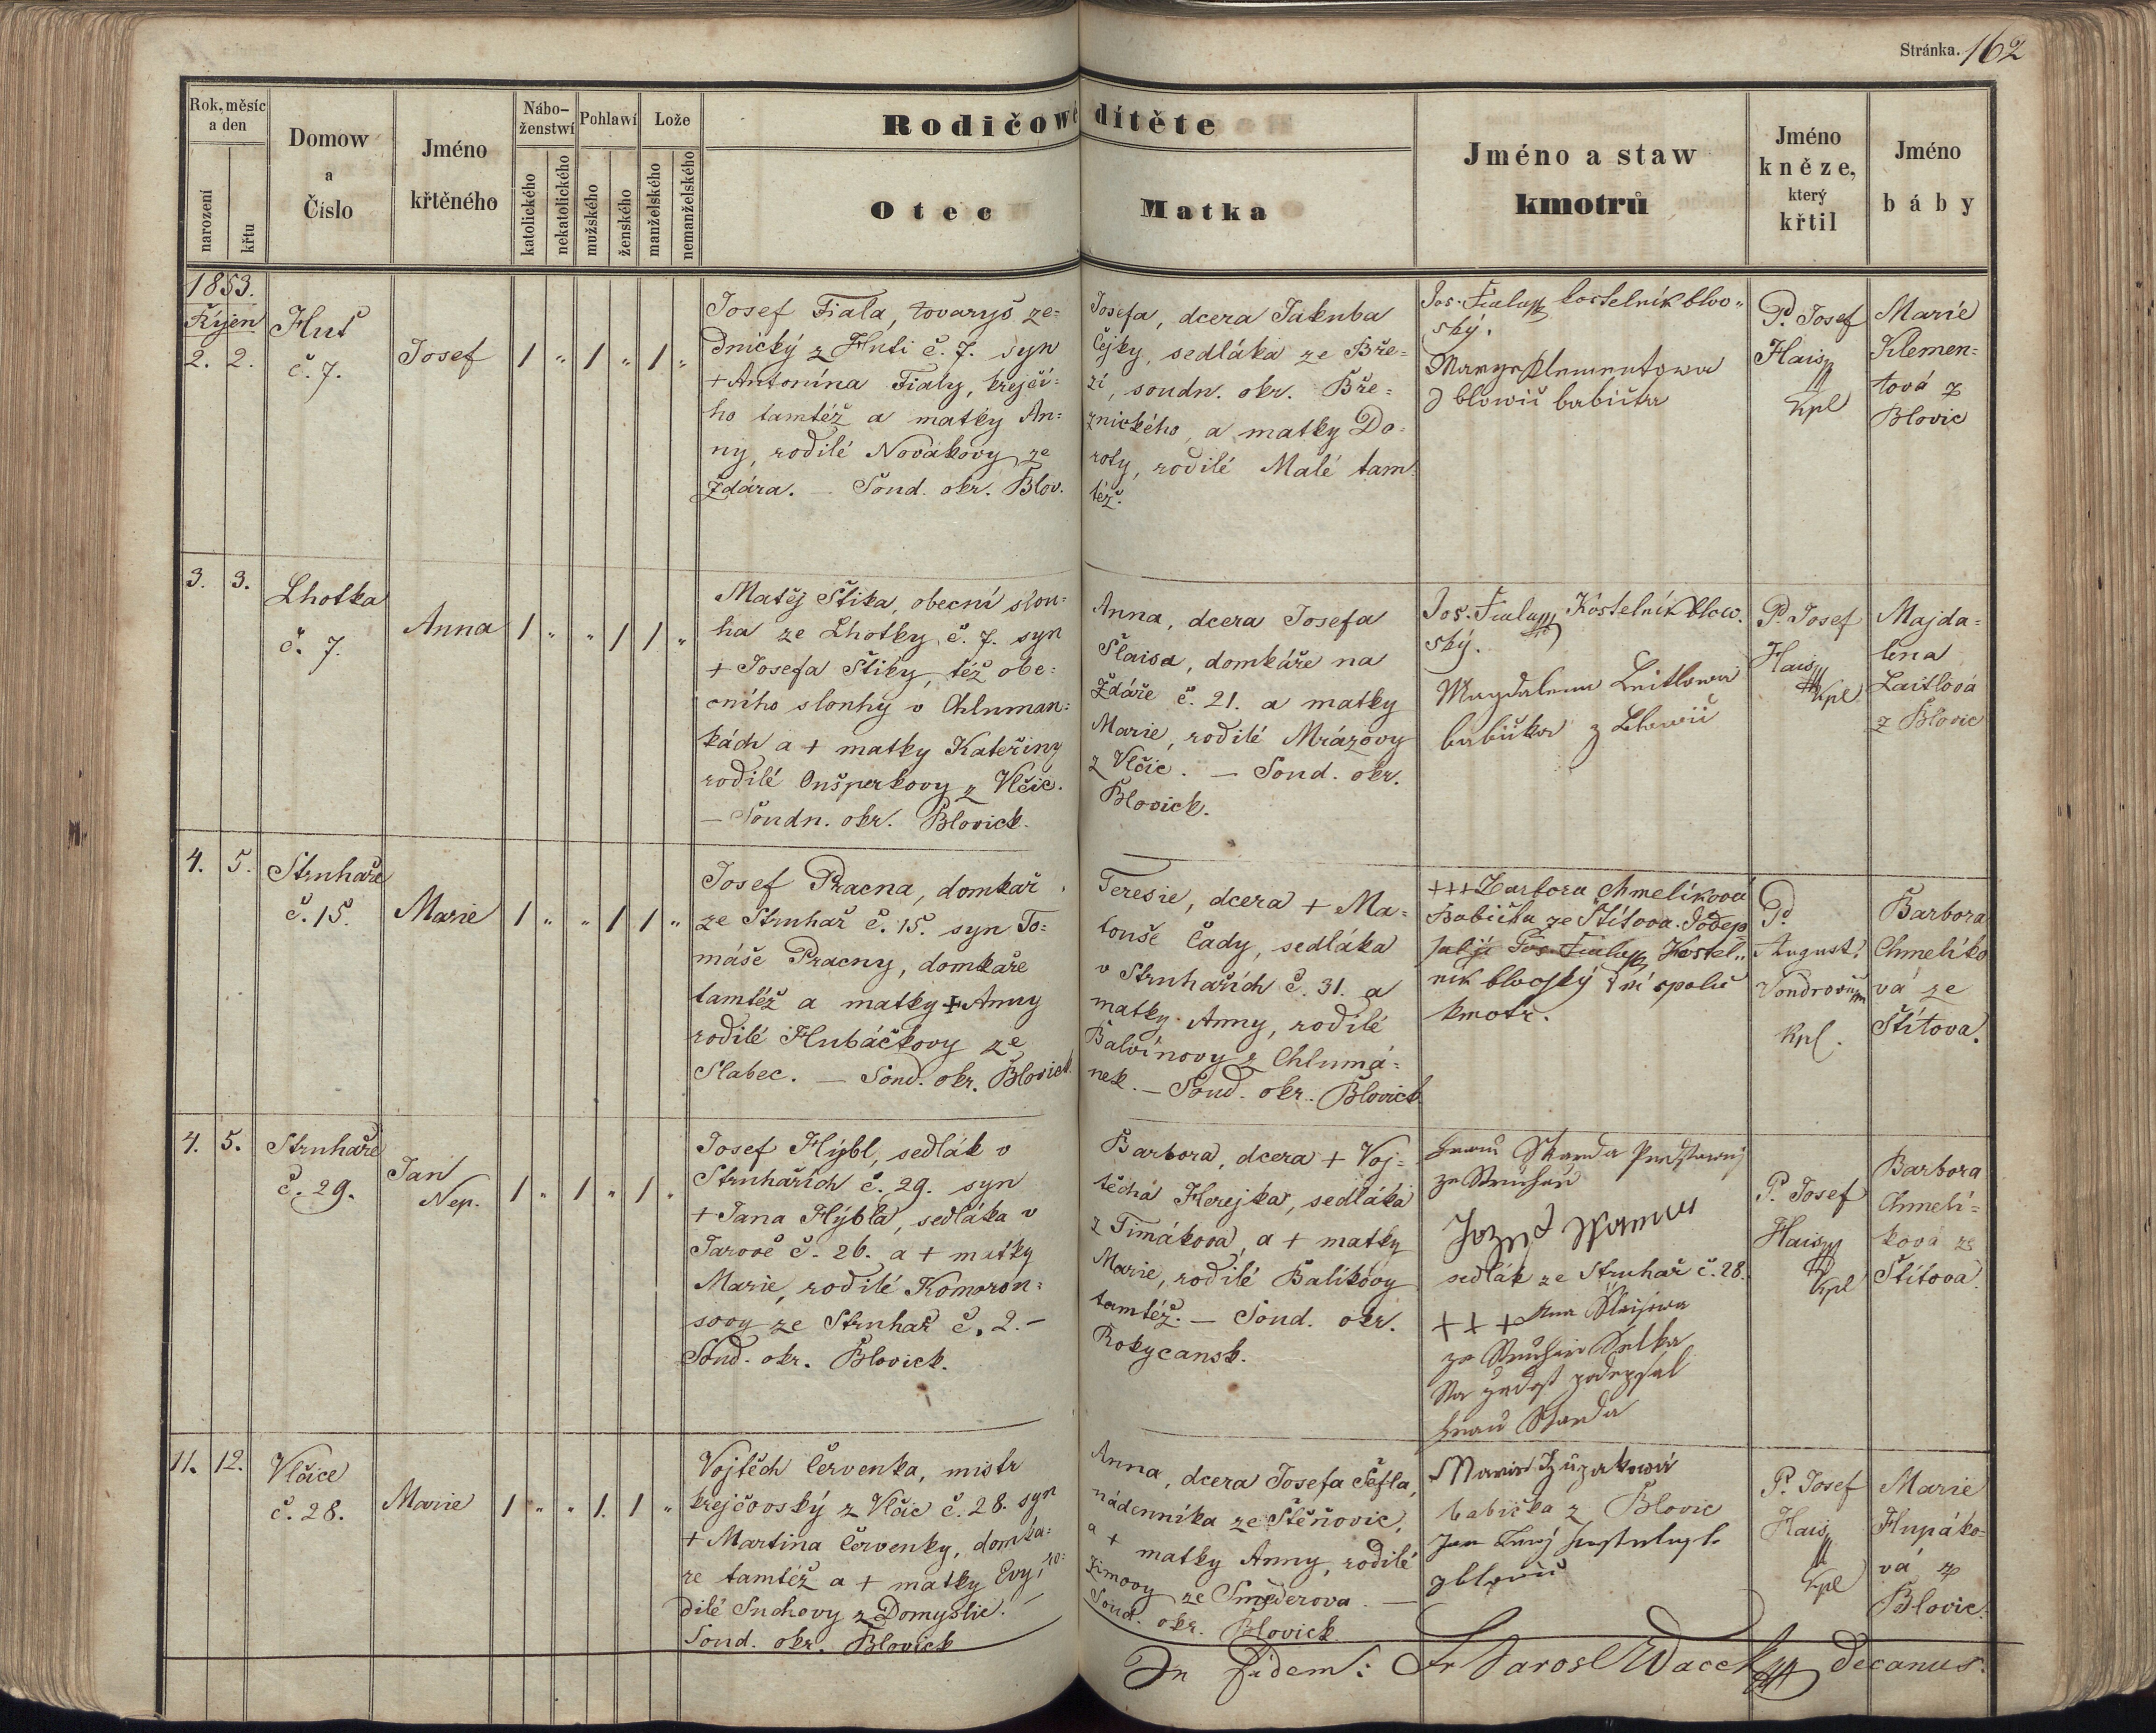 Stránka. 162
Rok, měsíc
a den
narození
křtu
Domow
a
Číslo
Jméno
křtěného
Nábo-
ženstwí
katolického
nekatolického
Pohlawí
mužského
ženského
Lože
manželského
nemanželského
Rodičowé dítěte
Otec
Matka
Jméno a staw
kmotrů
Jméno
kněze,
který
křtil
Jméno
báby
1853.
Říjen
2. 2.
Huť
č. 7.
Josef
1 " 1 " 1 "
Josef Fiala, tovaryš ze=
dnický z Huti č. 7. syn
+ Antonína Fialy, krejčí=
ho tamtéž a matky An=
ny, rodilé Novákovy ze
Ždára. — Soud. okr. Blov.
Josefa, dcera Jakuba
Čejky, sedláka ze Bře=
zí, soudn. okr. Bře=
znického, a matky Do=
roty, rodilé Malé tam=
též.
Jos. Fiala kostelník blov"
ský.
P. Josef
Hais
kpl
Marie
Klemen=
tová z
Blovic
3. 3.
Lhotka
č. 7.
Anna
1 " " 1 1 "
Matěj Štika, obecní slou=
ha ze Lhotky č. 7. syn
+ Josefa Štiky, též obe=
cního slouhy v Chluman=
kách a + matky Kateřiny
rodilé Oušperkovy z Vlčic.
— Soudn. okr. Blovick.
Anna, dcera Josefa
Šlaisa, domkáře na
Ždáře č. 21. a matky
Marie, rodilé Mrázovy
z Vlčic. — Soud. okr.
Blovick.
Jos. Fiala Kostelník blow.
ský.
Magdalena Leitlowa
babička z Blowic
P. Josef
Hais
kpl
Majda=
lena
Laitlová
z Blovic
4. 5.
Struhaře
č. 15.
Marie
1 " " 1 1 "
Josef Pracna, domkař
ze Struhař č. 15. syn To=
máše Pracny, domkaře
tamtéž a matky + Anny
rodilé Hubáčkovy ze
Slabec. — Soud. okr. Blovick.
Teresie, dcera + Ma=
touše Čady, sedláka
v Struhařích č. 31. a
matky Anny, rodilé
Balvínovy z Chlumá=
nek. — Soud. okr. Blovick.
+++ Barbora Chmelíková
Babička ze Štítova.
Jos. Fiala Kostel"
ník blovský spolu
kmotr.
P.
August.
kpl.
Barbora
Chmelíko
vá ze
Štítova.
4. 5.
Struhaře
č. 29.
Jan
Nep.
1 " 1 " 1 "
Josef Hýbl, sedlák v
Struhařích č. 29. syn
+ Jana Hýbla, sedláka v
Jarově č. 26. a + matky
Marie, rodilé Komorou=
sovy ze Struhař č. 2. —
Soud. okr. Blovick.
Barbora, dcera + Voj=
těcha Herejka, sedláka
z Timákova, a + matky
Marie, rodilé Balíkovy
tamtéž. — Soud. okr.
Rokycansk.
sedlák ze Struhař č. 28.
+ + +
P. Josef
Hais
kpl
Barbora
Chmelí=
ková ze
Štítova.
11. 12.
Vlčice
č. 28.
Marie
1 " " 1. 1 "
Vojtěch Červenka, mistr
krejčovský z Vlčic č. 28. syn
+ Martina Červenky, domka=
ře tamtéž a + matky Evy, ro=
dilé Suchovy z Domyslic. —
Soud. okr. Blovick
Anna, dcera Josefa Šefla,
nádenníka ze Štěňovic,
a + matky Anny, rodilé
Zimovy ze Směderova. —
Soud. okr. Blovick.
babička z Blovic
P. Josef
Hais
kpl
Marie
Hupáko=
vá z
Blovic.
In fidem: Fr Jarosl Wacek decanus.